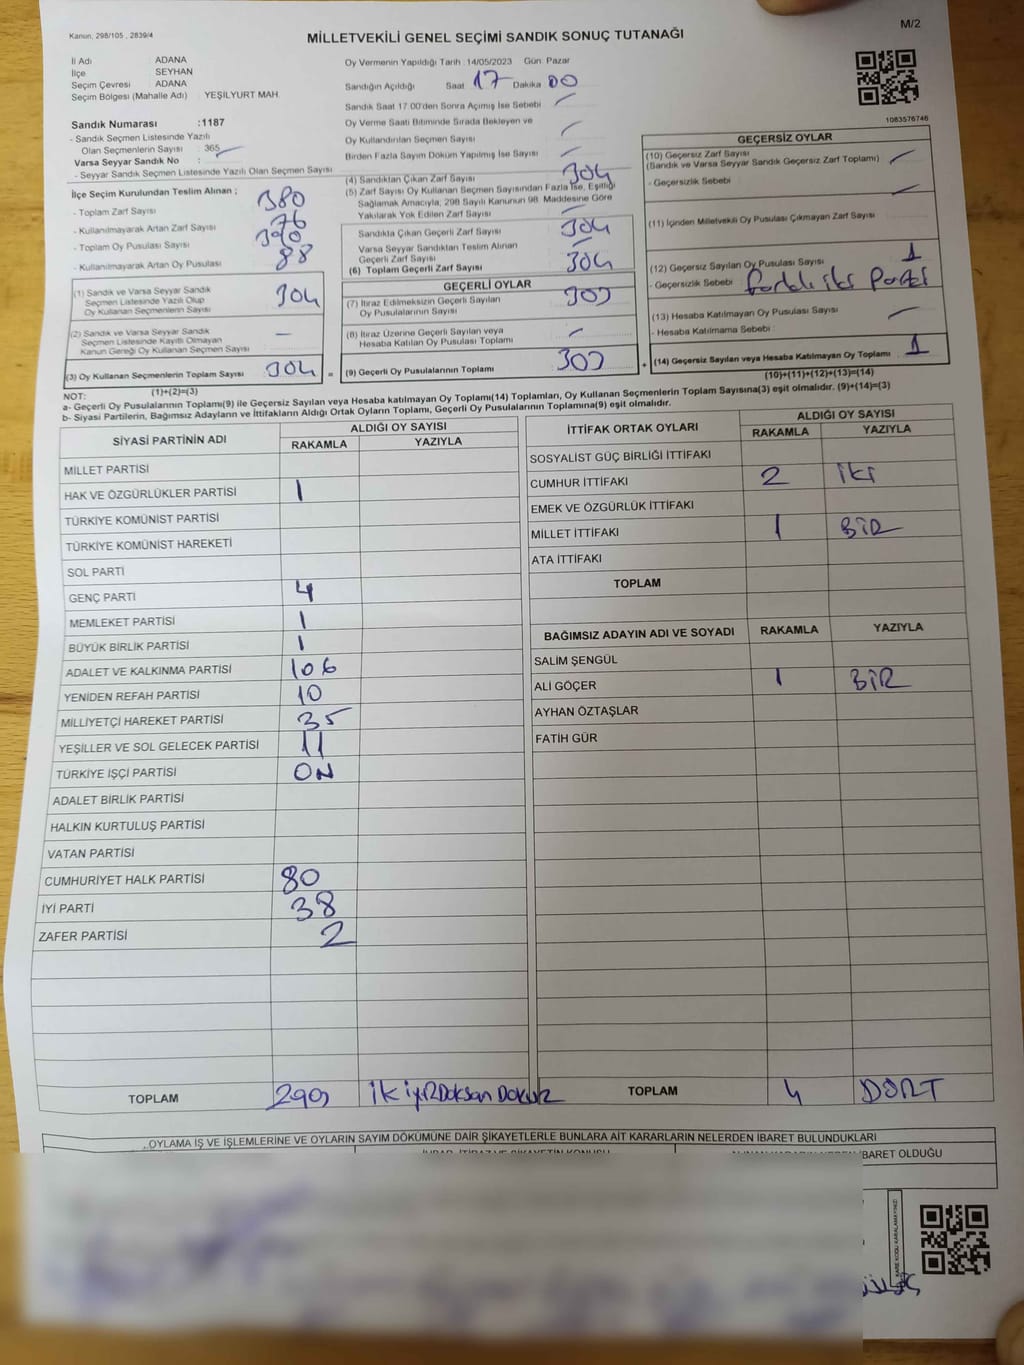 Kanun, 298/105 , 2839/4
M/2
MİLLETVEKİLİ GENEL SEÇİMİ SANDIK SONUÇ TUTANAĞI
İl Adı ADANA
İlçe SEYHAN
Seçim Çevresi ADANA
Seçim Bölgesi (Mahalle Adı) : YEŞİLYURT MAH.
Sandık Numarası :1187
- Sandık Seçmen Listesinde Yazılı
Olan Seçmenlerin Sayısı : 365
Varsa Seyyar Sandık No :
- Seyyar Sandık Seçmen Listesinde Yazılı Olan Seçmen Sayısı
İlçe Seçim Kurulundan Teslim Alınan ;
- Toplam Zarf Sayısı 380
- Kullanılmayarak Artan Zarf Sayısı 76
- Toplam Oy Pusulası Sayısı 390
- Kullanılmayarak Artan Oy Pusulası 88
(1) Sandık ve Varsa Seyyar Sandık
Seçmen Listesinde Yazılı Olup
Oy Kullanan Seçmenlerin Sayısı 304
(2) Sandık ve Varsa Seyyar Sandık
Seçmen Listesinde Kayıtlı Olmayan
Kanun Gereği Oy Kullanan Seçmen Sayısı —
(3) Oy Kullanan Seçmenlerin Toplam Sayısı 304 =
(1)+(2)=(3)
Oy Vermenin Yapıldığı Tarih : 14/05/2023 Gün: Pazar
Sandığın Açıldığı Saat 17 Dakika 00
Sandık Saat 17.00'den Sonra Açımış İse Sebebi
Oy Verme Saati Bitiminde Sırada Bekleyen ve
Oy Kullandırılan Seçmen Sayısı
Birden Fazla Sayım Döküm Yapılmış İse Sayısı
(4) Sandıktan Çıkan Zarf Sayısı 304
(5) Zarf Sayısı Oy Kullanan Seçmen Sayısından Fazla İse, Eşitliği
Sağlamak Amacıyla, 298 Sayılı Kanunun 98. Maddesine Göre
Yakılarak Yok Edilen Zarf Sayısı
Sandıkla Çıkan Geçerli Zarf Sayısı 304
Varsa Seyyar Sandıktan Teslim Alınan
Geçerli Zarf Sayısı
(6) Toplam Geçerli Zarf Sayısı 304
GEÇERLİ OYLAR
(7) İtiraz Edilmeksizin Geçerli Sayılan
Oy Pusulalarının Sayısı 303
(8) İtiraz Üzerine Geçerli Sayılan veya
Hesaba Katılan Oy Pusulası Toplamı
(9) Geçerli Oy Pusulalarının Toplamı 303 +
1083576746
GEÇERSİZ OYLAR
(10) Geçersiz Zarf Sayısı
(Sandık ve Varsa Seyyar Sandık Geçersiz Zarf Toplamı)
- Geçersizlik Sebebi :
(11) İçinden Milletvekili Oy Pusulası Çıkmayan Zarf Sayısı
(12) Geçersiz Sayılan Oy Pusulası Sayısı 1
- Geçersizlik Sebebi : farklı iki Parti
(13) Hesaba Katılmayan Oy Pusulası Sayısı
- Hesaba Katılmama Sebebi :
(14) Geçersiz Sayılan veya Hesaba Katılmayan Oy Toplamı 1
(10)+(11)+(12)+(13)=(14)
NOT:
a- Geçerli Oy Pusulalarının Toplamı(9) ile Geçersiz Sayılan veya Hesaba katılmayan Oy Toplamı(14) Toplamları, Oy Kullanan Seçmenlerin Toplam Sayısına(3) eşit olmalıdır. (9)+(14)=(3)
b- Siyasi Partilerin, Bağımsız Adayların ve İttifakların Aldığı Ortak Oyların Toplamı, Geçerli Oy Pusulalarının Toplamına(9) eşit olmalıdır.
SİYASİ PARTİNİN ADI ALDIĞI OY SAYISI
RAKAMLA YAZIYLA
MİLLET PARTİSİ
HAK VE ÖZGÜRLÜKLER PARTİSİ 1
TÜRKİYE KOMÜNİST PARTİSİ
TÜRKİYE KOMÜNİST HAREKETİ
SOL PARTİ
GENÇ PARTİ 4
MEMLEKET PARTİSİ 1
BÜYÜK BİRLİK PARTİSİ 1
ADALET VE KALKINMA PARTİSİ 106
YENİDEN REFAH PARTİSİ 10
MİLLİYETÇİ HAREKET PARTİSİ 35
YEŞİLLER VE SOL GELECEK PARTİSİ 11
TÜRKİYE İŞÇİ PARTİSİ ON
ADALET BİRLİK PARTİSİ
HALKIN KURTULUŞ PARTİSİ
VATAN PARTİSİ
CUMHURİYET HALK PARTİSİ 80
İYİ PARTİ 38
ZAFER PARTİSİ 2
TOPLAM 299 İkiyüzDoksan Dokuz
İTTİFAK ORTAK OYLARI ALDIĞI OY SAYISI
RAKAMLA YAZIYLA
SOSYALİST GÜÇ BİRLİĞİ İTTİFAKI
CUMHUR İTTİFAKI 2 iki
EMEK VE ÖZGÜRLÜK İTTİFAKI
MİLLET İTTİFAKI 1 BİR
ATA İTTİFAKI
TOPLAM
BAĞIMSIZ ADAYIN ADI VE SOYADI RAKAMLA YAZIYLA
SALİM ŞENGÜL
ALİ GÖÇER 1 BİR
AYHAN ÖZTAŞLAR
FATİH GÜR
TOPLAM 4 DÖRT
OYLAMA İŞ VE İŞLEMLERİNE VE OYLARIN SAYIM DÖKÜMÜNE DAİR ŞİKAYETLERLE BUNLARA AİT KARARLARIN NELERDEN İBARET BULUNDUKLARI
İBARET OLDUĞU